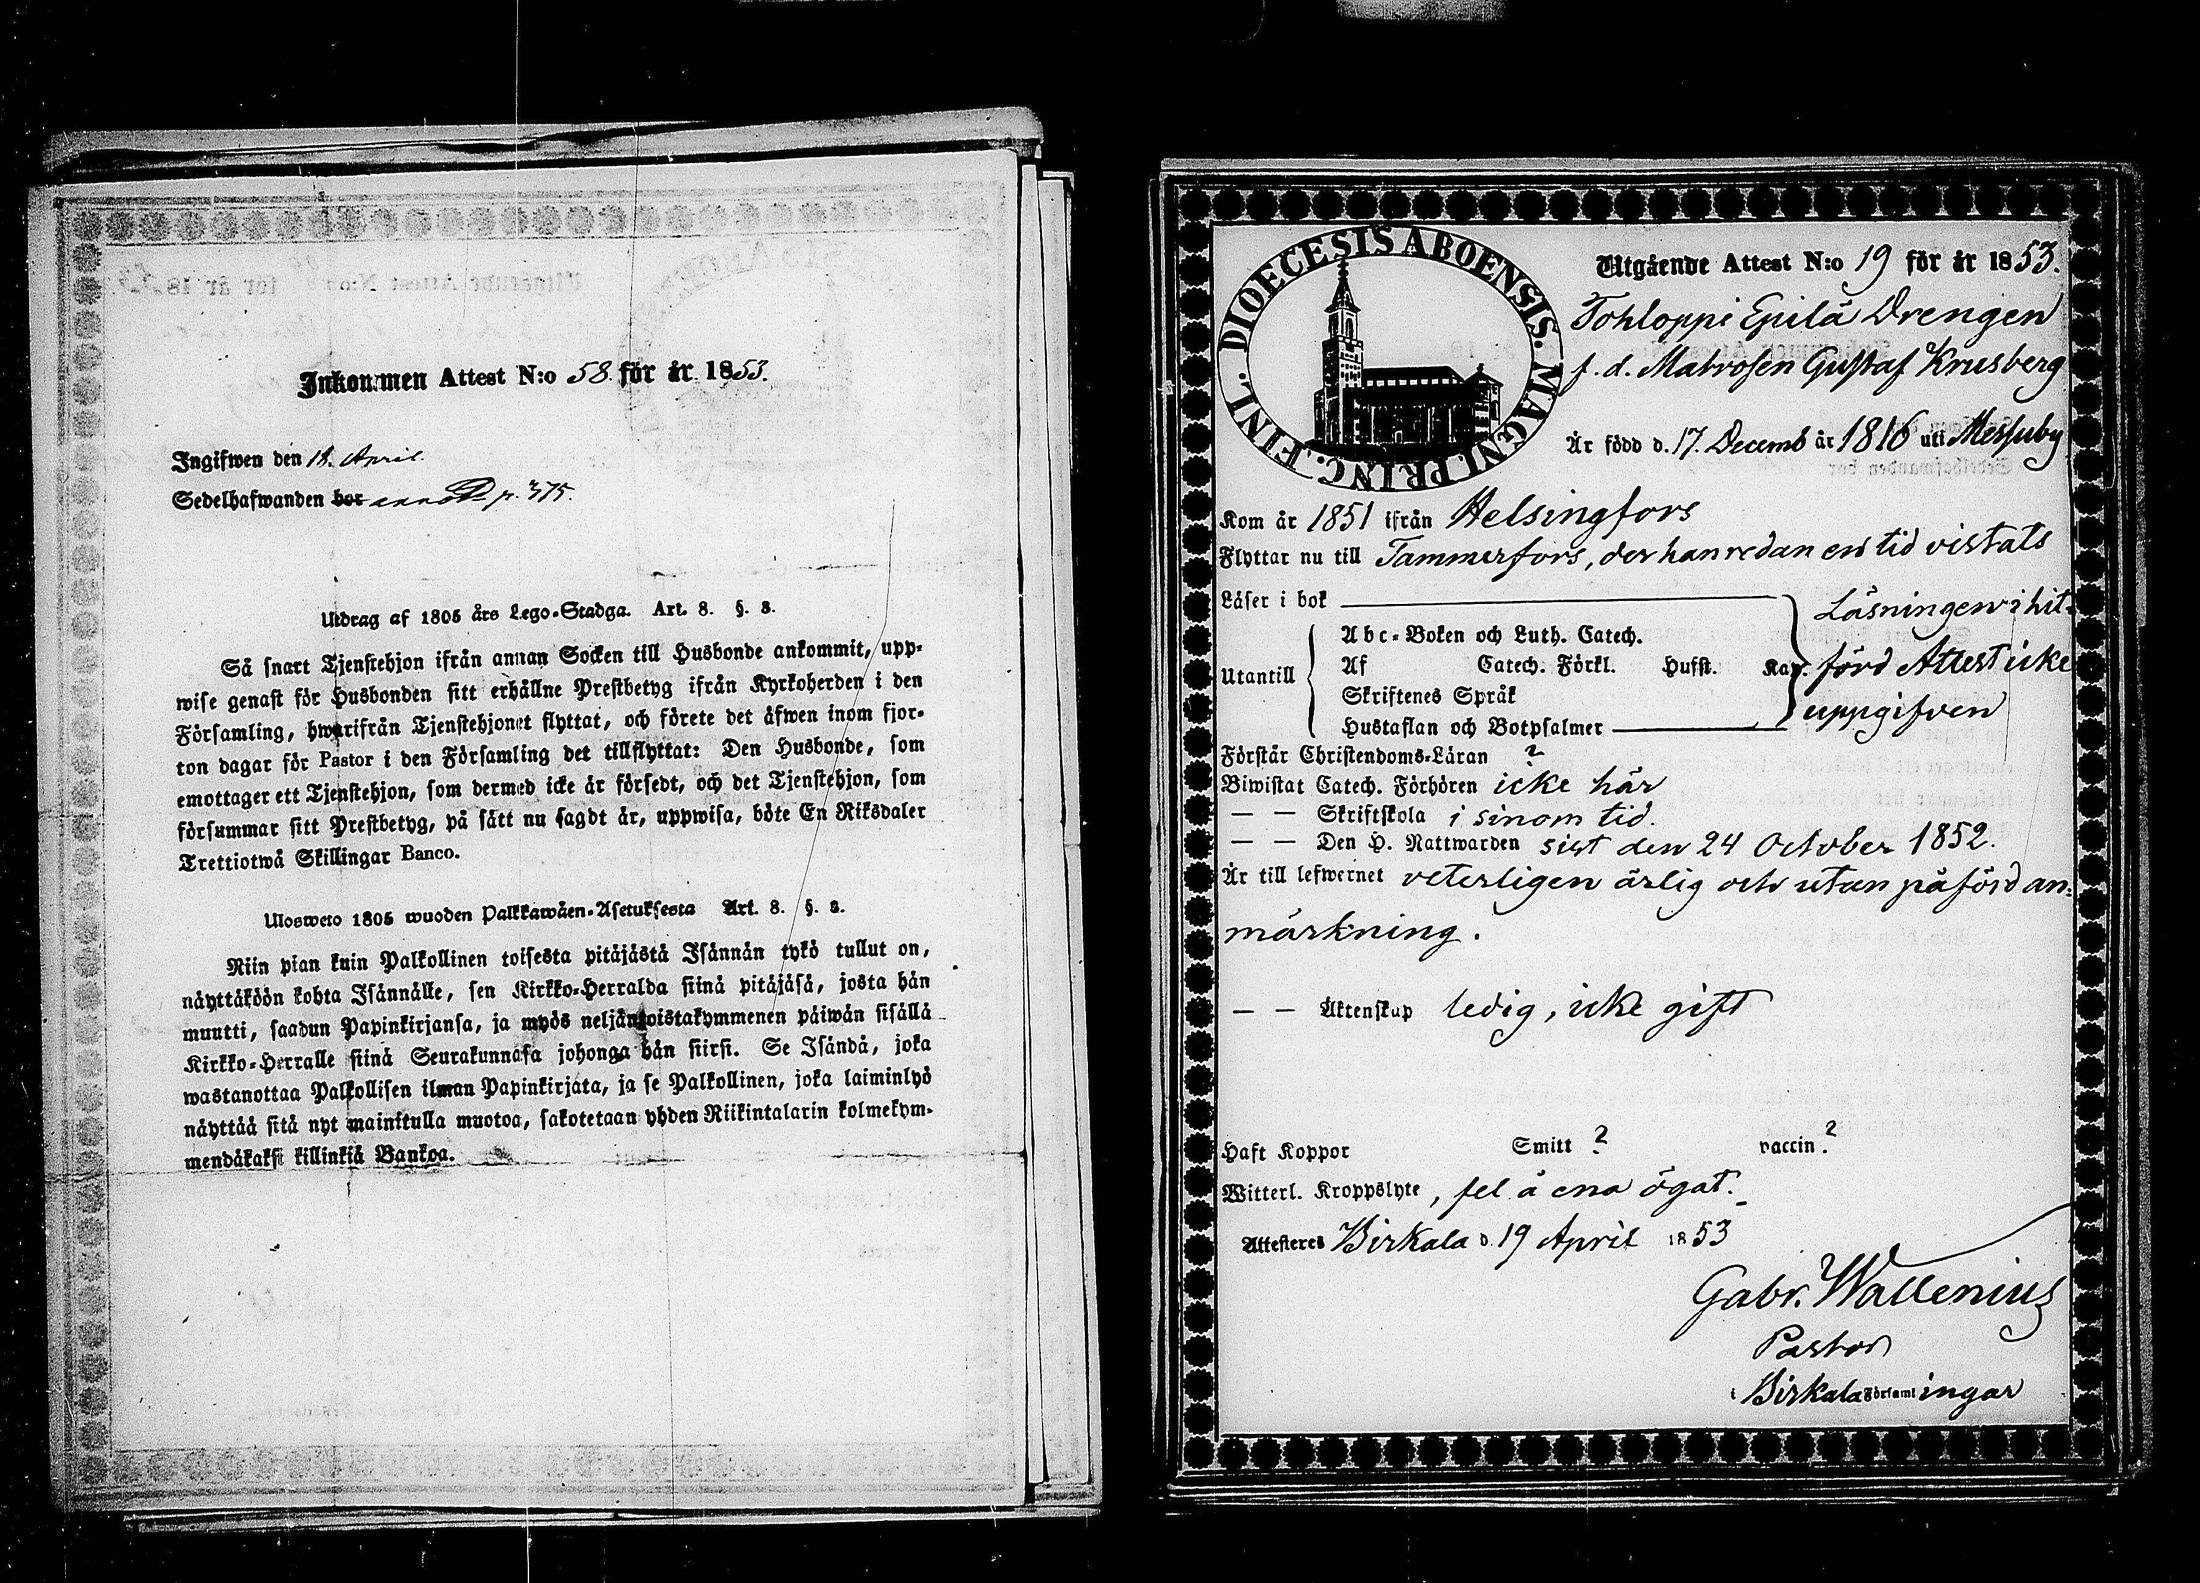 Inkommen Attest N:o 58 för år 1853.
Ingifwen den 18. April.
Sedelhafwanden bor p. 375.
Utdrag af 1805 års Lego-Stadga. Art. 8. §. 3.
Så snart Tjenstehjon ifrån annan Socken till Husbonde ankommit, upp-
wise genast för Husbonden sitt erhållne Prestbetyg ifrån Kyrkoherden i den
Församling, hwarifrån Tjenstehjonet flyttat, och förete det äfwen inom fjor-
ton dagar för Pastor i den Församling det tillflyttat: Den Husbonde, som
emottager ett Tjenstehjon, som dermed icke är försedt, och det Tjenstehjon, som
försummar sitt Prestbetyg, på sätt nu sagdt är, uppwisa, böte En Riksdaler
Trettiotwå Skillingar Banco.
Ulosweto 1805 wuoden Palkkawäen-Asetuksesta Art. 8. §. 3.
Niin pian kuin Palkollinen toisesta pitäjästä Isännän tykö tullut on,
näyttäköön kohta Isännälle, sen Kirkko-Herralda siinä pitäjäsä, josta hän
muutti, saadun Papinkirjansa, ja myös neljäntoistakymmenen päiwän sisällä
Kirkko-Herralle siinä Seurakunnasa johonga hän siirsi. Se Isändä, joka
wastanottaa Palkollisen ilman Papinkirjata, ja se Palkollinen, joka laiminlyö
näyttää sitä nyt mainitulla muotoa, sakotetaan yhden Riikintalarin kolmekym-
mendäkaksi killinkiä Bankoa.
DIOECESIS ABOENSIS. MAGNI PRINC. FINL.
Utgående Attest N:o 19 för år 1853.
Tohloppi Epilä Drengen
f. d. Matrosen Gustaf Krusberg
Är född d. 17. Decemb år 1816 uti Messuby
Kom år 1851 ifrån Helsingfors
Flyttar nu till Tammerfors, der han redan en tid vistats
Läser i bok
Utantill
Abc-Boken och Luth. Catech.
Af Catech. Förkl. Hufst. Kap.
Skriftenes Språk
Hustaflan och Botpsalmer
Läsningen i hit-
förd Attest icke
uppgifven
Förstår Christendoms-Läran ?
Biwistat Catech. Förhören icke här
— — Skriftskola i sinom tid.
— — Den H. Nattwarden sist den 24 October 1852.
Är till lefwernet veterligen ärlig och utan påförd an-
märkning.
— — Äktenskap ledig, icke gift
Haft Koppor Smitt ? vaccin ?
Witterl. Kroppslyte, fel å ena ögat.
Attesteres Birkala d. 19 April 1853
Gabr. Wallenius
Pastor
i Birkala Församlingar